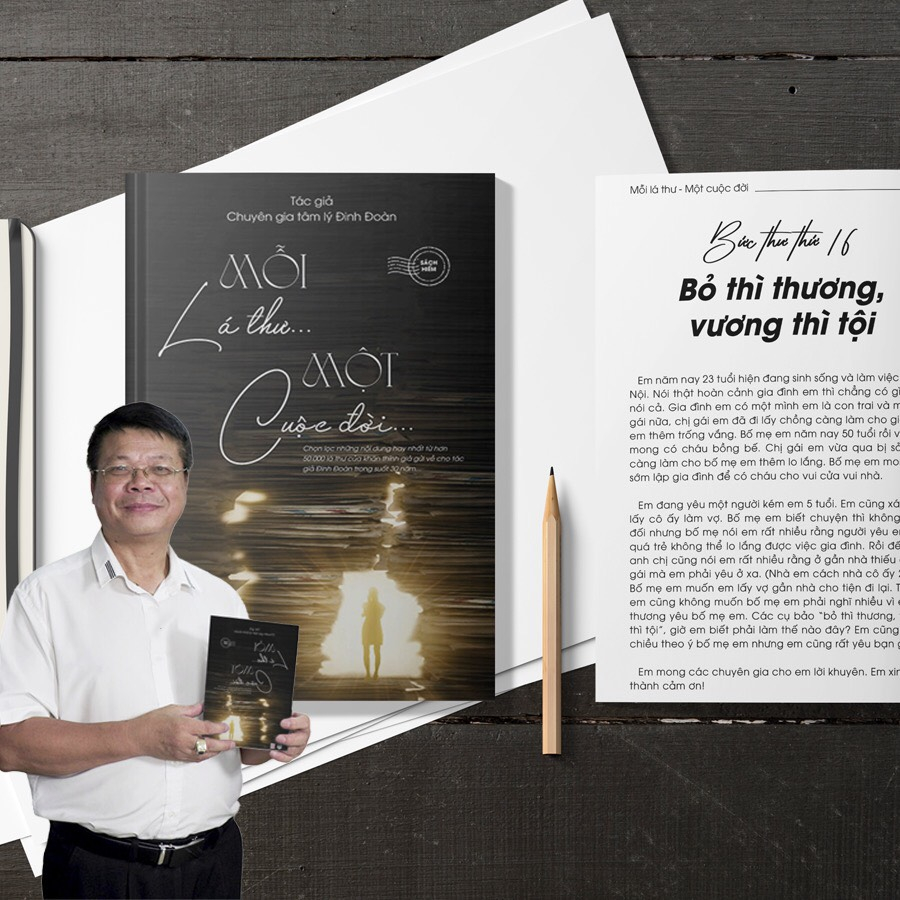 Tác giả
Chuyên gia tâm lý Đinh Đoàn
MỖI
Lá thư...
MỘT
Cuộc đời...
SÁCH
HIẾM
Chọn lọc những nội dung hay nhất từ hơn
50.000 lá thư của khán thính giả gửi về cho tác
giả Đinh Đoàn trong suốt 30 năm...
MỖI
Lá thư...
MỘT
Cuộc đời...
Mỗi lá thư - Một cuộc đời
Bức thư thứ 16
Bỏ thì thương,
vương thì tội
Em năm nay 23 tuổi hiện đang sinh sống và làm việc
Nội. Nói thật hoàn cảnh gia đình em thì chẳng có gì
nói cả. Gia đình em có một mình em là con trai và
gái nữa, chị gái em đã đi lấy chồng càng làm cho gi
em thêm trống vắng. Bố mẹ em năm nay 50 tuổi rồi v
mong có cháu bồng bế. Chị gái em vừa qua bị
càng làm cho bố mẹ em thêm lo lắng. Bố mẹ em
sớm lập gia đình để có cháu cho vui cửa vui nhà.
Em đang yêu một người kém em 5 tuổi. Em cũng
lấy cô ấy làm vợ. Bố mẹ em biết chuyện thì không
đối nhưng bố mẹ nói em rất nhiều rằng người yêu
quá trẻ không thể lo lắng được việc gia đình. Rồi
anh chị cũng nói em rất nhiều rằng ở gần nhà thiếu
gái mà em phải yêu ở xa. (Nhà em cách nhà cô ấy
Bố mẹ em muốn em lấy vợ gần nhà cho tiện đi lại. T
em cũng không muốn bố mẹ em phải nghĩ nhiều vì
thương yêu bố mẹ em. Các cụ bảo “bỏ thì thương,
thì tội”, giờ em biết phải làm thế nào đây? Em cũng
chiều theo ý bố mẹ em nhưng em cũng rất yêu bạn
Em mong các chuyên gia cho em lời khuyên. Em xin
thành cảm ơn!